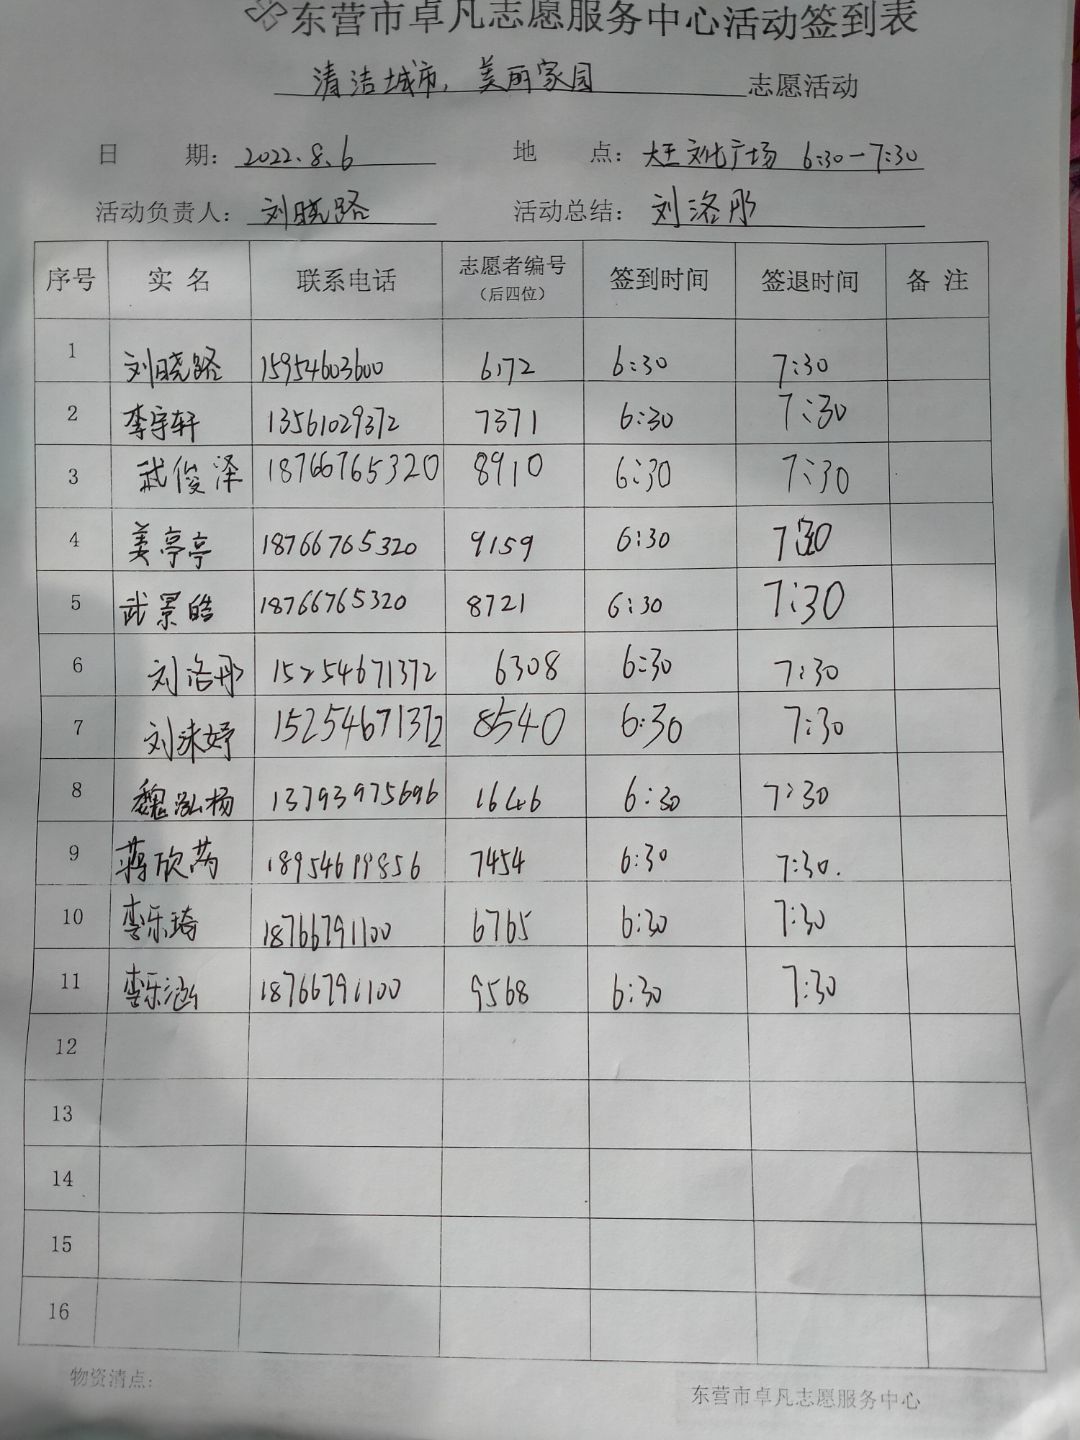 东营市卓凡志愿服务中心活动签到表
清洁城市,美丽家园 志愿活动
日 期: 2022.8.6 地 点: 大王文化广场 6:30-7:30
活动负责人: 刘晓路 活动总结: 刘洛彤
序号 实名 联系电话 志愿者编号(后四位) 签到时间 签退时间 备注
1 刘晓路 15954603600 6172 6:30 7:30
2 李宇轩 13561029372 7371 6:30 7:30
3 武俊泽 18766765320 8910 6:30 7:30
4 姜亭亭 18766765320 9159 6:30 7:30
5 武景皓 18766765320 8721 6:30 7:30
6 刘洛彤 15254671372 6308 6:30 7:30
7 刘沫妤 15254671372 8540 6:30 7:30
8 魏泓杨 13793975696 1646 6:30 7:30
9 蒋欣芮 18954699856 7454 6:30 7:30.
10 李乐琦 18766791100 6765 6:30 7:30
11 李乐涵 18766791100 9568 6:30 7:30
12
13
14
15
16
物资清点:
东营市卓凡志愿服务中心